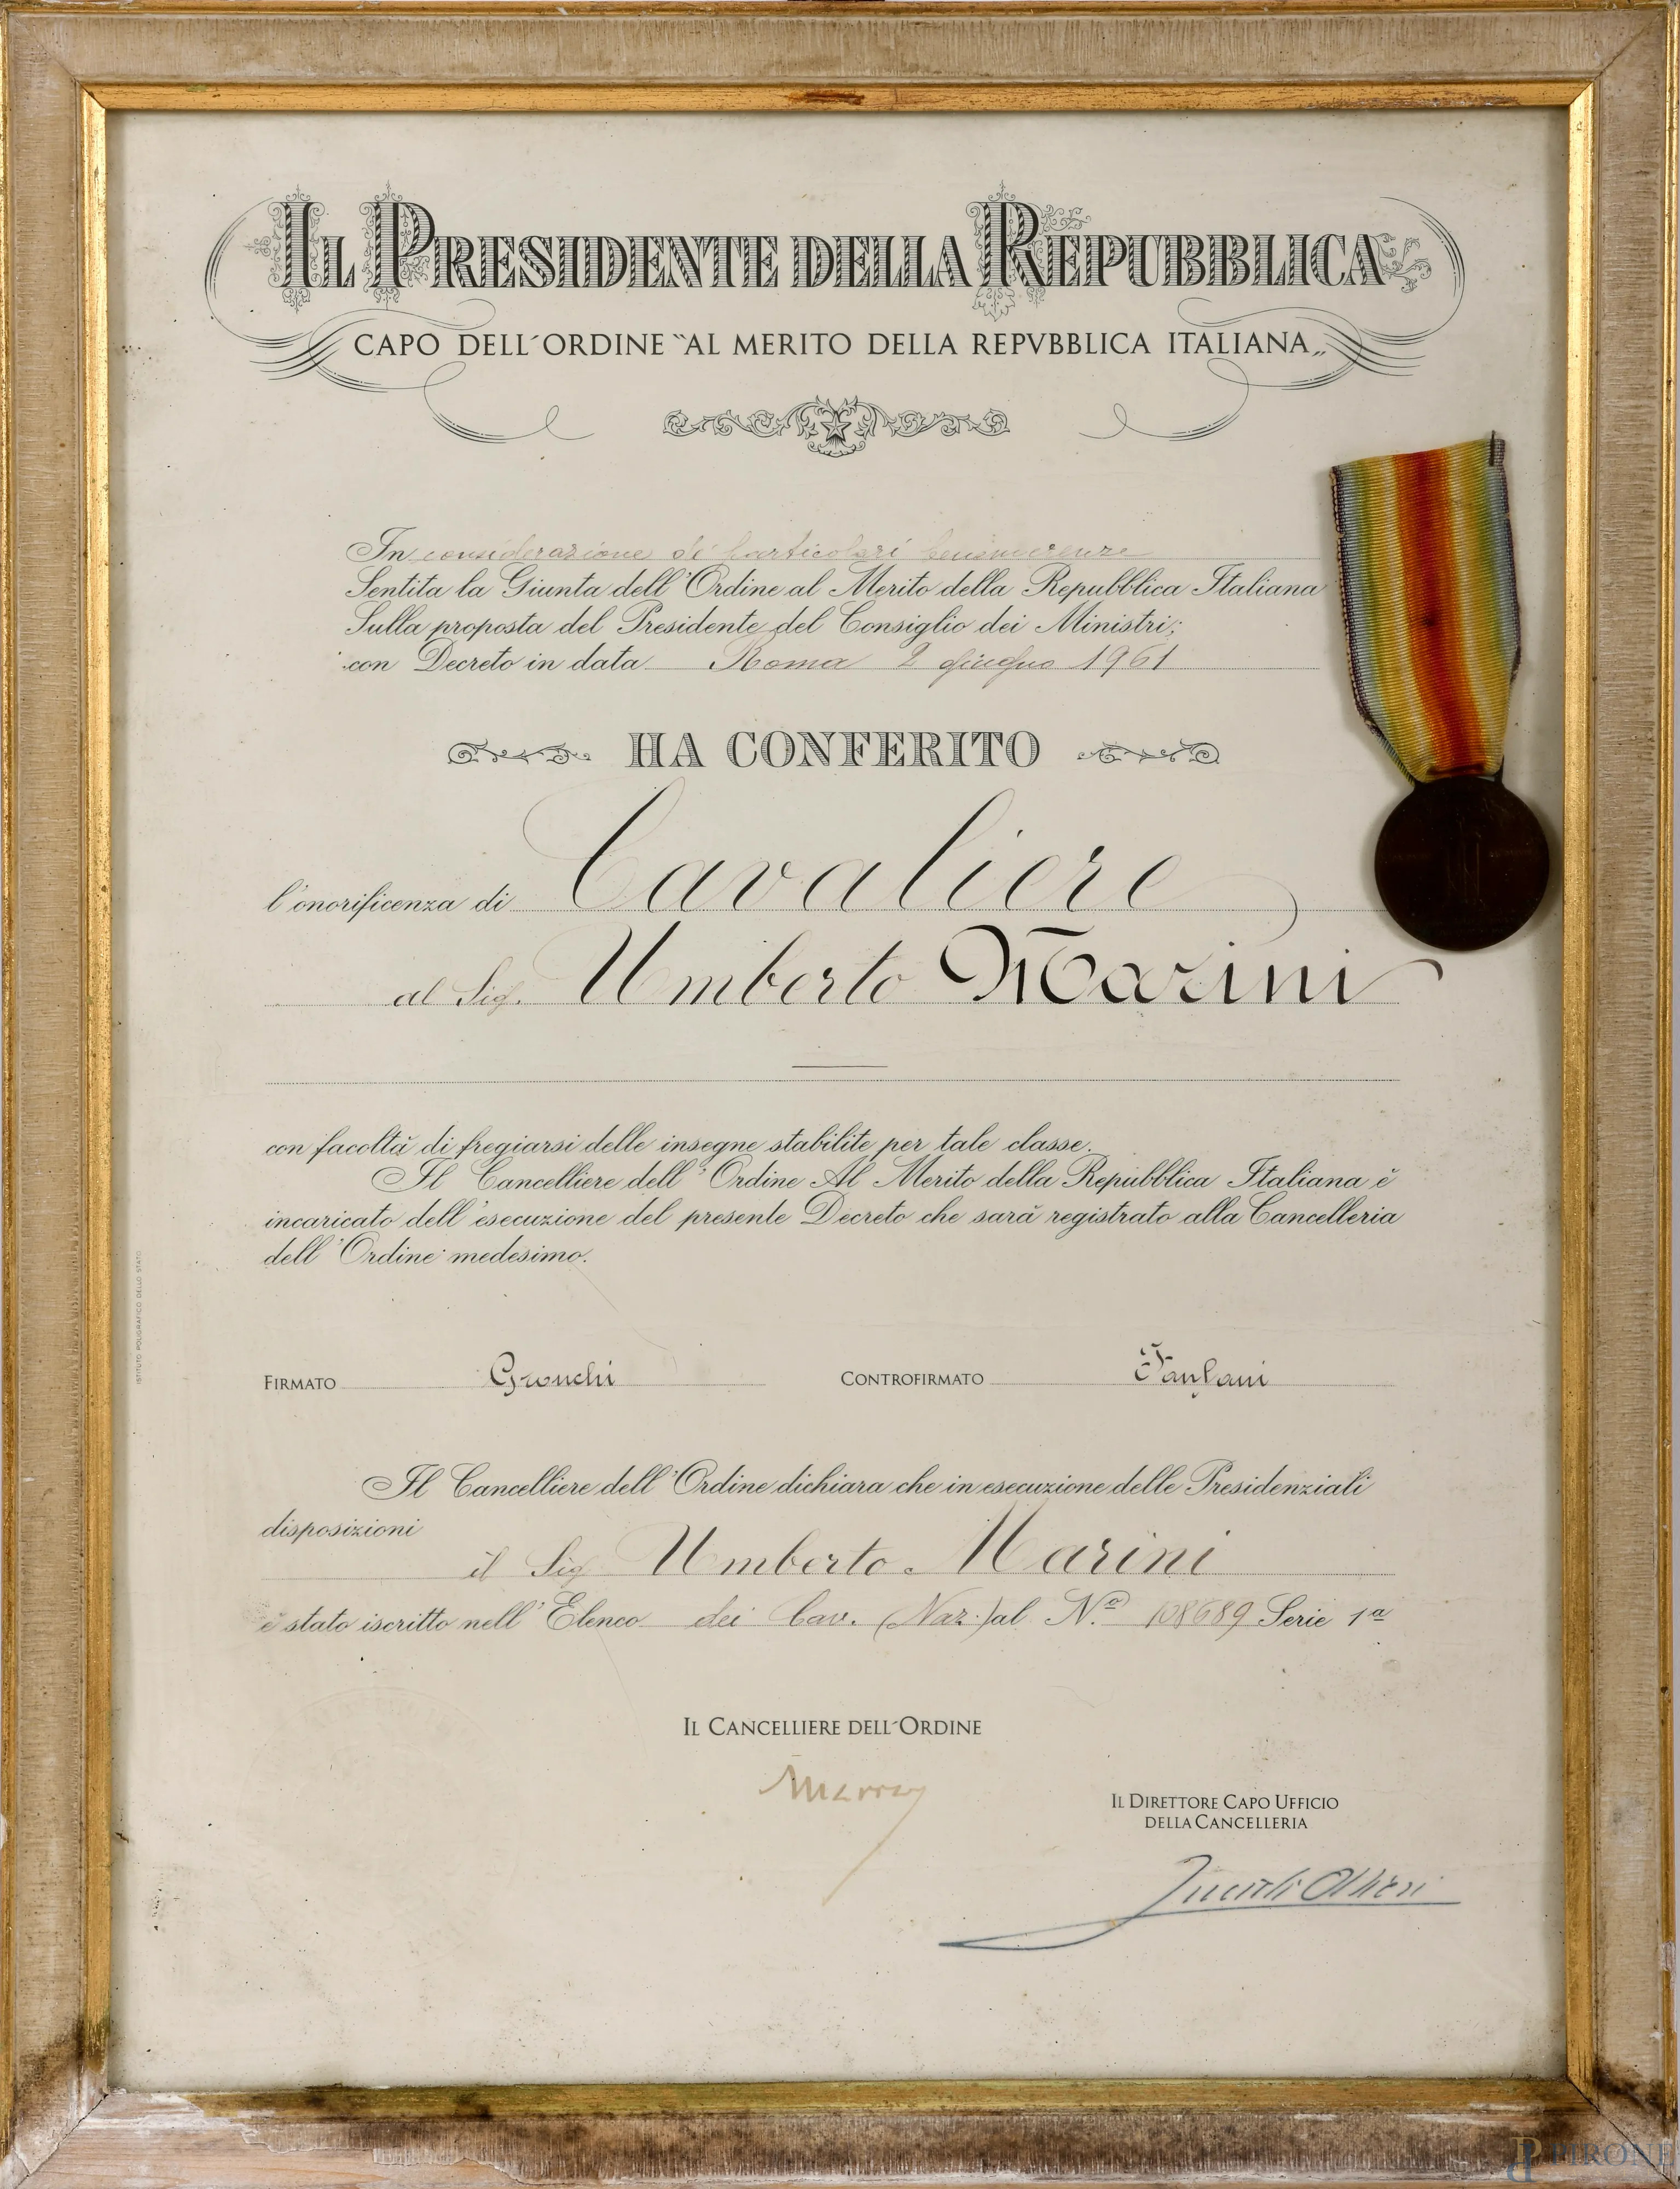 IL PRESIDENTE DELLA REPUBBLICA
CAPO DELL'ORDINE "AL MERITO DELLA REPVBBLICA ITALIANA„
In considerazione di particolari benemerenze
Sentita la Giunta dell'Ordine al Merito della Repubblica Italiana
Sulla proposta del Presidente del Consiglio dei Ministri;
con Decreto in data Roma 2 giugno 1961
HA CONFERITO
l'onorificenza di Cavaliere
al Sig. Umberto Marini
con facoltà di fregiarsi delle insegne stabilite per tale classe.
Il Cancelliere dell'Ordine Al Merito della Repubblica Italiana è
incaricato dell'esecuzione del presente Decreto che sarà registrato alla Cancelleria
dell'Ordine medesimo.
FIRMATO Gronchi CONTROFIRMATO Fanfani
Il Cancelliere dell'Ordine dichiara che in esecuzione delle Presidenziali
disposizioni
il Sig Umberto Marini
è stato iscritto nell'Elenco dei Cav. (Naz.) al N.º 108689 Serie 1ª
IL CANCELLIERE DELL'ORDINE
IL DIRETTORE CAPO UFFICIO
DELLA CANCELLERIA
ISTITUTO POLIGRAFICO DELLO STATO
PIRONE